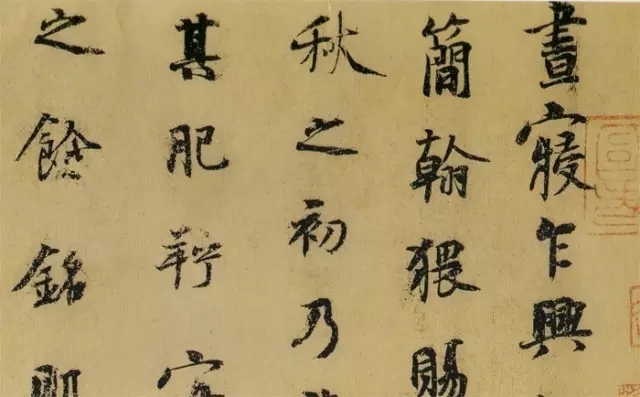 晝寢乍興
簡翰猥賜
秋之初乃
其肥羜
之餘銘